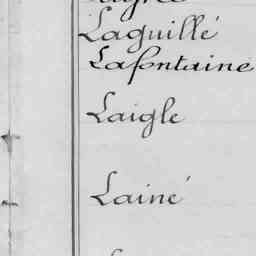 Laguillé
Lafontaine
Laigle
Lainé